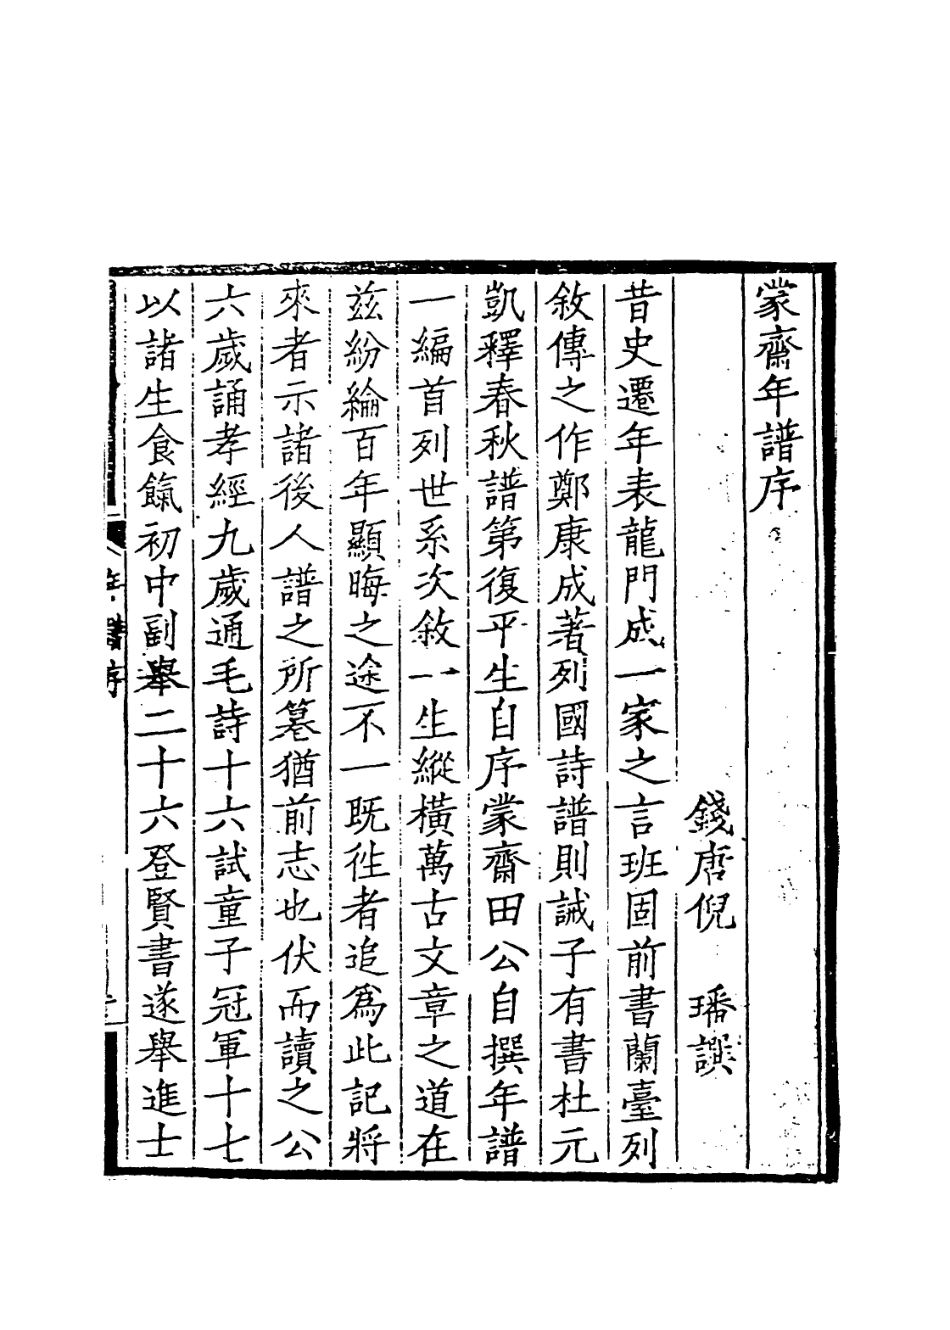 蒙齋年譜序
錢唐倪　璠譔
昔史遷年表龍門成一家之言班固前書蘭臺列
敘傳之作鄭康成著列國詩譜則誡子有書杜元
凱釋春秋譜第復平生自序蒙齋田公自撰年譜
一編首列世系次敘一生縱橫萬古文章之道在
兹紛綸百年顯晦之途不一既徃者追爲此記將
來者示諸後人譜之所篹猶前志也伏而讀之公
六歲誦孝經九歲通毛詩十六試童子冠軍十七
以諸生食餼初中副舉二十六登賢書遂舉進士
年譜序